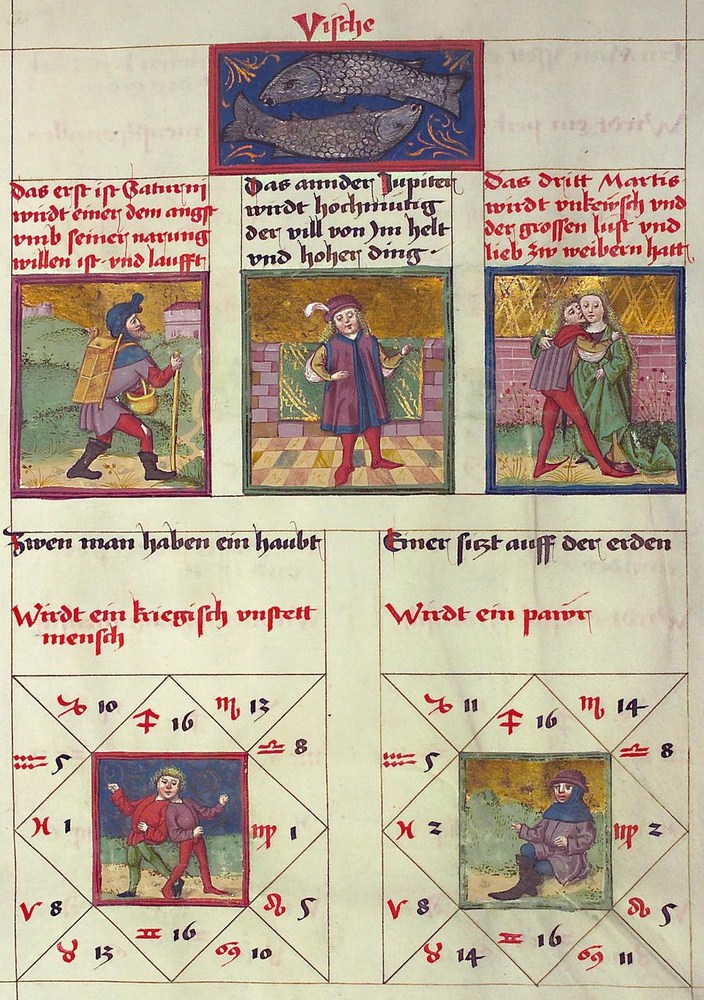 Vische
Das erst ist Saturni
wirdt einer dem angst
vmb seiner narung
willen ist vnd laufft
Das annder Jupiter
wirdt hochmutig
der vill von Jm helt
vnd hoher ding
Das dritt Martis
wirdt vnkewsch vnd
der grossen lust vnd
lieb zw weibern hatt
Zwen man haben ein haubt
Wirdt ein kriegisch vnstett
mensch
♑ 10
♐ 16
♏ 13
♒ 5
♎ 8
♓ 1
♍ 1
♈ 8
♌ 5
♉ 13
♊ 16
♋ 10
Einer sitzt auff der erden
Wirdt ein pawr
♑ 11
♐ 16
♏ 14
♒ 5
♎ 8
♓ 2
♍ 2
♈ 8
♌ 5
♉ 14
♊ 16
♋ 11